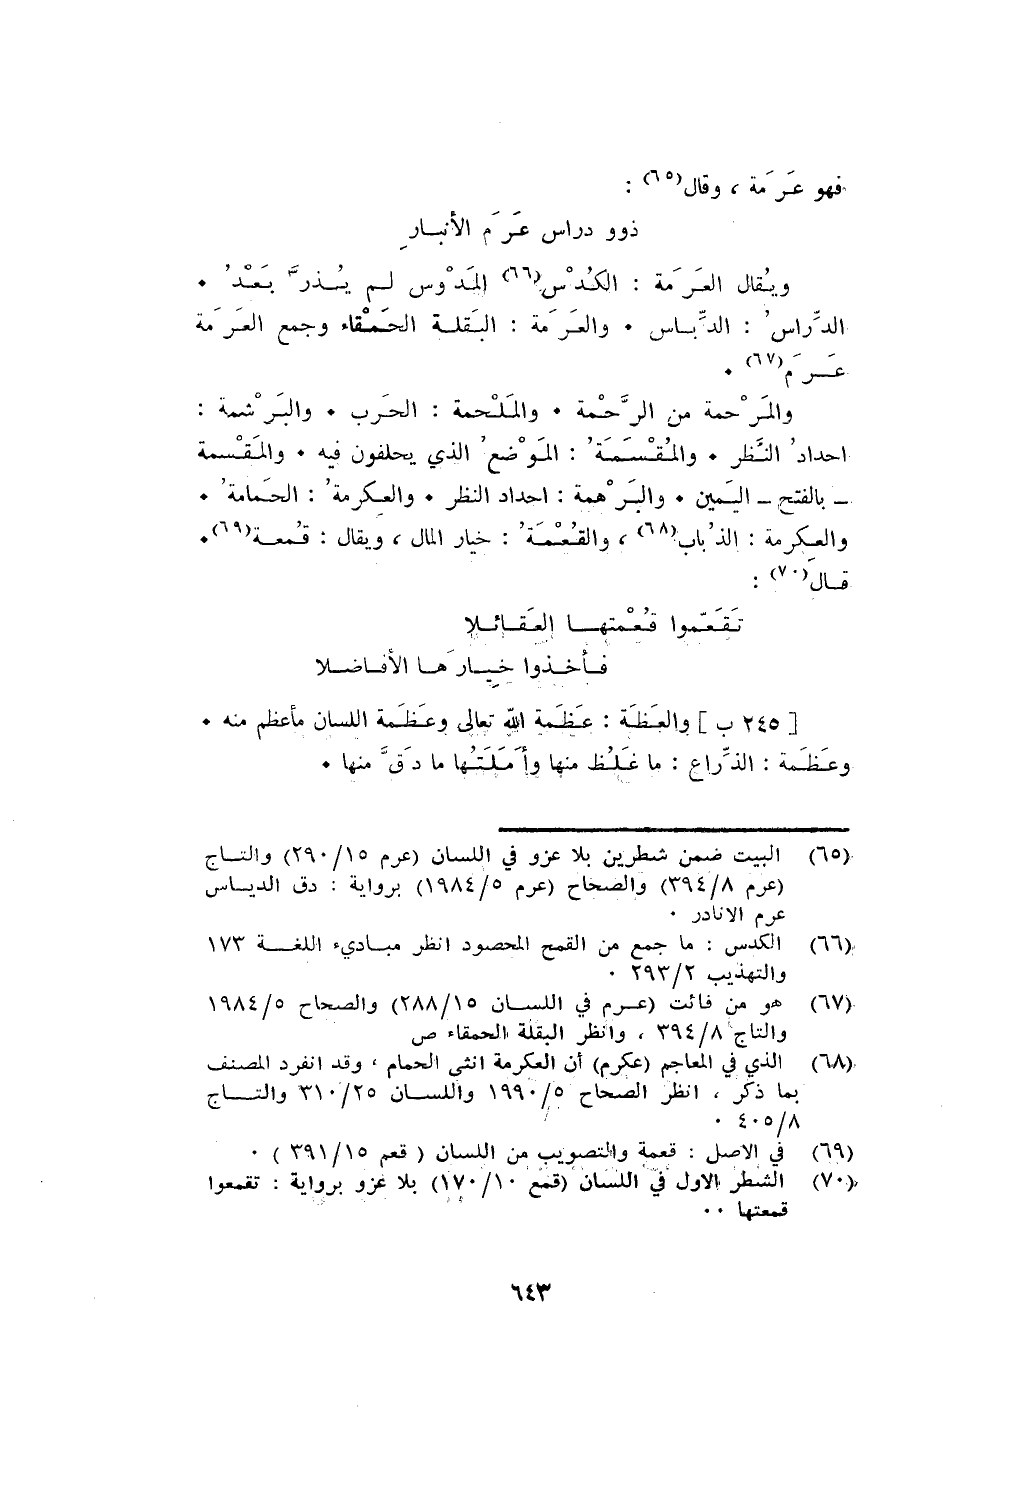 فهو عَرَمة ، وقال(٦٥) :
ذوو دراس عَرَم الأنبارِ
ويُقال العَرَمة : الكُدْس(٦٦) المَدْوس لم يُذرَّ بَعْدُ .
الدِّراسُ : الدِّياس . والعَرَمة : البَقلة الحَمْقاء وجمع العَرَمة
عَرَم(٦٧) .
والمَرْحمة من الرَّحْمة . والمَلْحمة : الحَرب . والبَرْشمة :
احدادُ النَّظر . والمُقْسَمَةُ : المَوْضعُ الذي يحلفون فيه . والمَقْسمة
ـ بالفتح ـ اليَمين . والبَرْهمة : احداد النظر . والعكرمةُ : الحَمامةُ .
والعكرمة : الذُباب(٦٨) ، والقُعْمَةُ : خيار المال ، ويقال : قُمعة(٦٩).
قال(٧٠) :
تَقَعَّموا قُعْمتها العَقائلا
فأخذوا خيارَها الأفاضلا
[ ٢٤٥ ب ] والعَظَمَة : عَظَمة الله تعالى وعَظَمة اللسان مأعظم منه .
وعَظَمة : الذِّراع : ما غَلُظ منها وأَمَلَتُها ما دَقَّ منها .
(٦٥) البيت ضمن شطرين بلا عزو في اللسان (عرم ٢٩٠/١٥) والتاج
(عرم ٣٩٤/٨) والصحاح (عرم ١٩٨٤/٥) برواية : دق الدياس
عرم الانادر .
(٦٦) الكدس : ما جمع من القمح المحصود انظر مبادىء اللغة ١٧٣
والتهذيب ٢٩٣/٢ .
(٦٧) هو من فائت (عرم في اللسان ٢٨٨/١٥) والصحاح ١٩٨٤/٥
والتاج ٣٩٤/٨ ، وانظر البقلة الحمقاء ص
(٦٨) الذي في المعاجم (عكرم) أن العكرمة انثى الحمام ، وقد انفرد المصنف
بما ذكر ، انظر الصحاح ١٩٩٠/٥ واللسان ٣١٠/٢٥ والتاج
٤٠٥/٨ .
(٦٩) في الاصل : قعمة والتصويب من اللسان ( قعم ٣٩١/١٥ ) .
(٧٠) الشطر الاول في اللسان (قمع ١٧٠/١٠) بلا عزو برواية : تقمعوا
قمعتها ..
٦٤٣